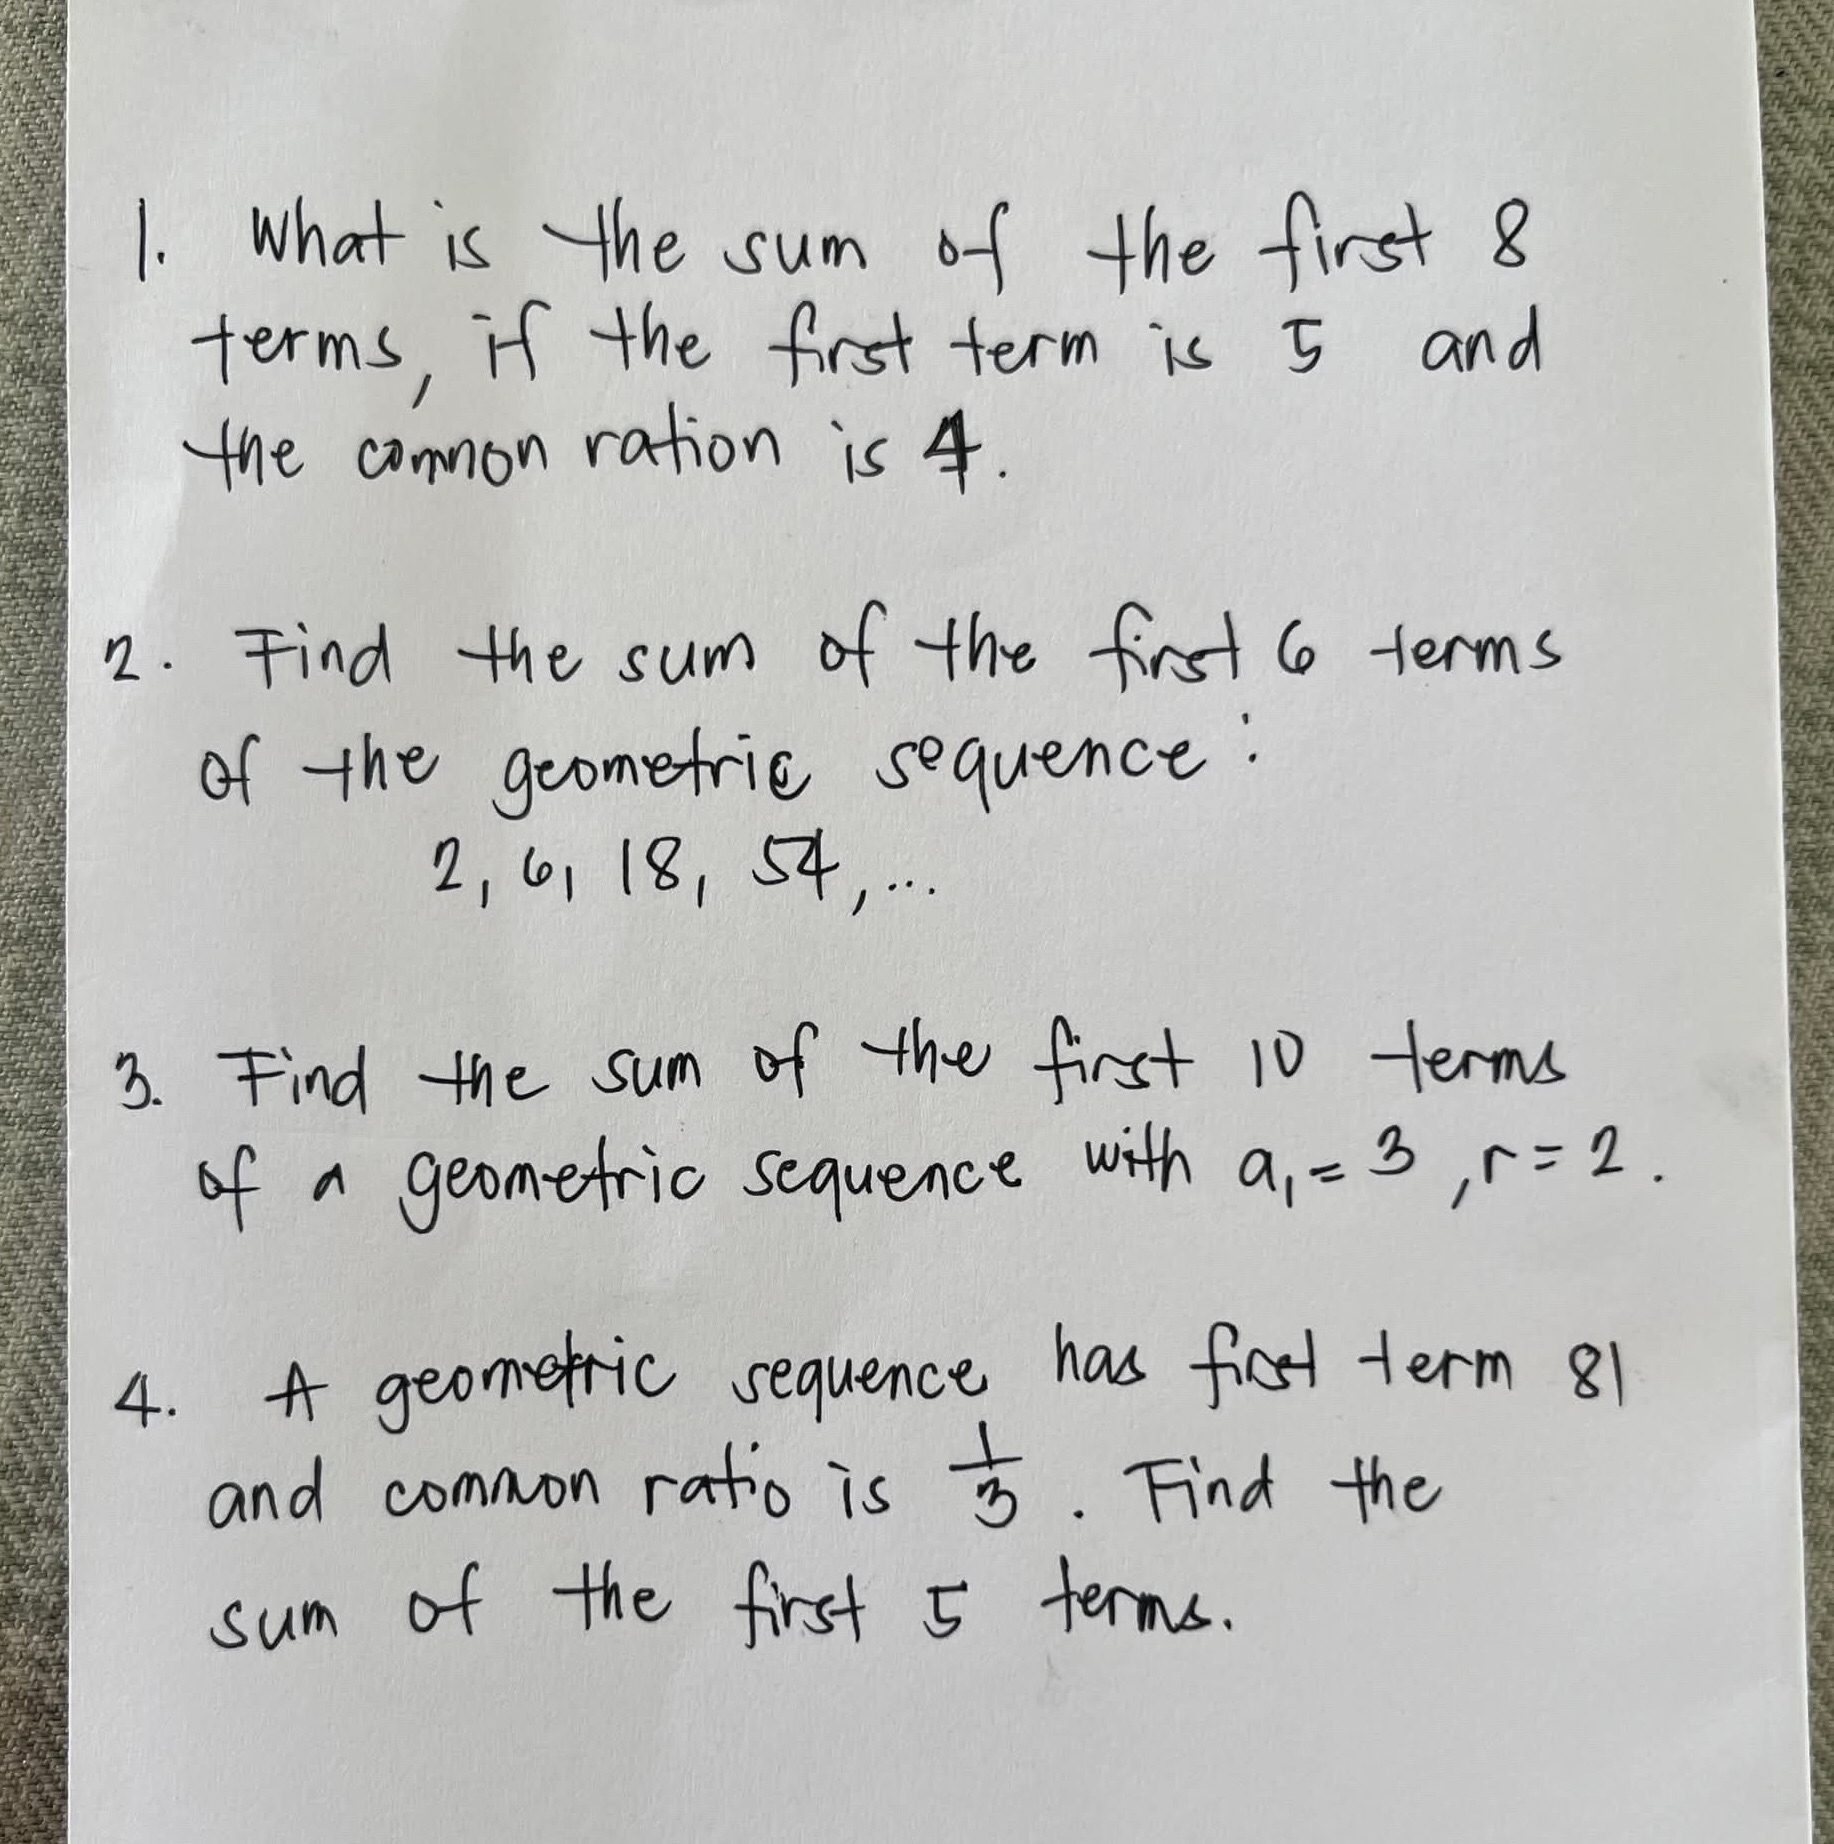 1. What is the sum of the first 8
terms, if the first term is 5 and
the common ration is 4.
2. Find the sum of the first 6 terms
of the geometric sequence:
2, 6, 18, 54, ...
3. Find the sum of the first 10 terms
of a geometric sequence with a₁ = 3, r = 2.
4. A geometric sequence has first term 81
and common ratio is 1/3. Find the
sum of the first 5 terms.